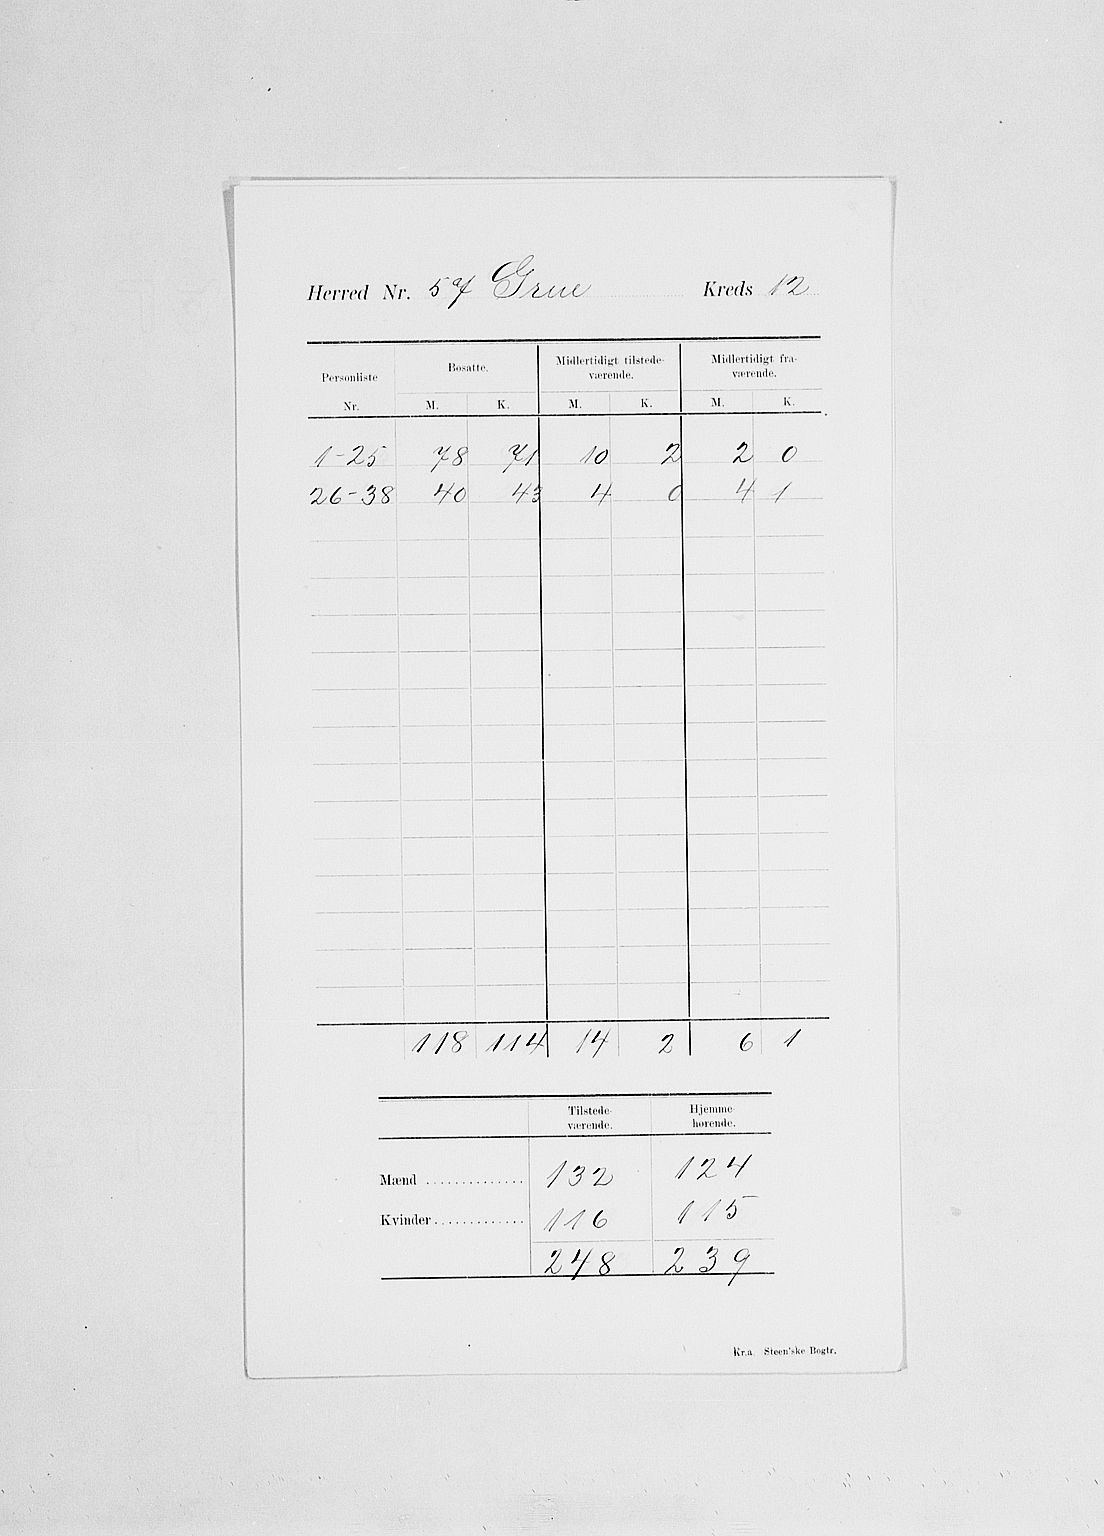 Herred Nr. 57 Grue Kreds 12
Personliste Nr. Bosatte. Midlertidigt tilstede- værende. Midlertidigt fra- værende.
M. K. M. K. M. K.
1-25 78 71 10 2 2 0
26-38 40 43 4 0 4 1
118 114 14 2 6 1
Tilstede- værende. Hjemme- hørende.
Mænd .............. 132 124
Kvinder ............. 116 115
248 239
Kr.a. Steen'ske Bogtr.